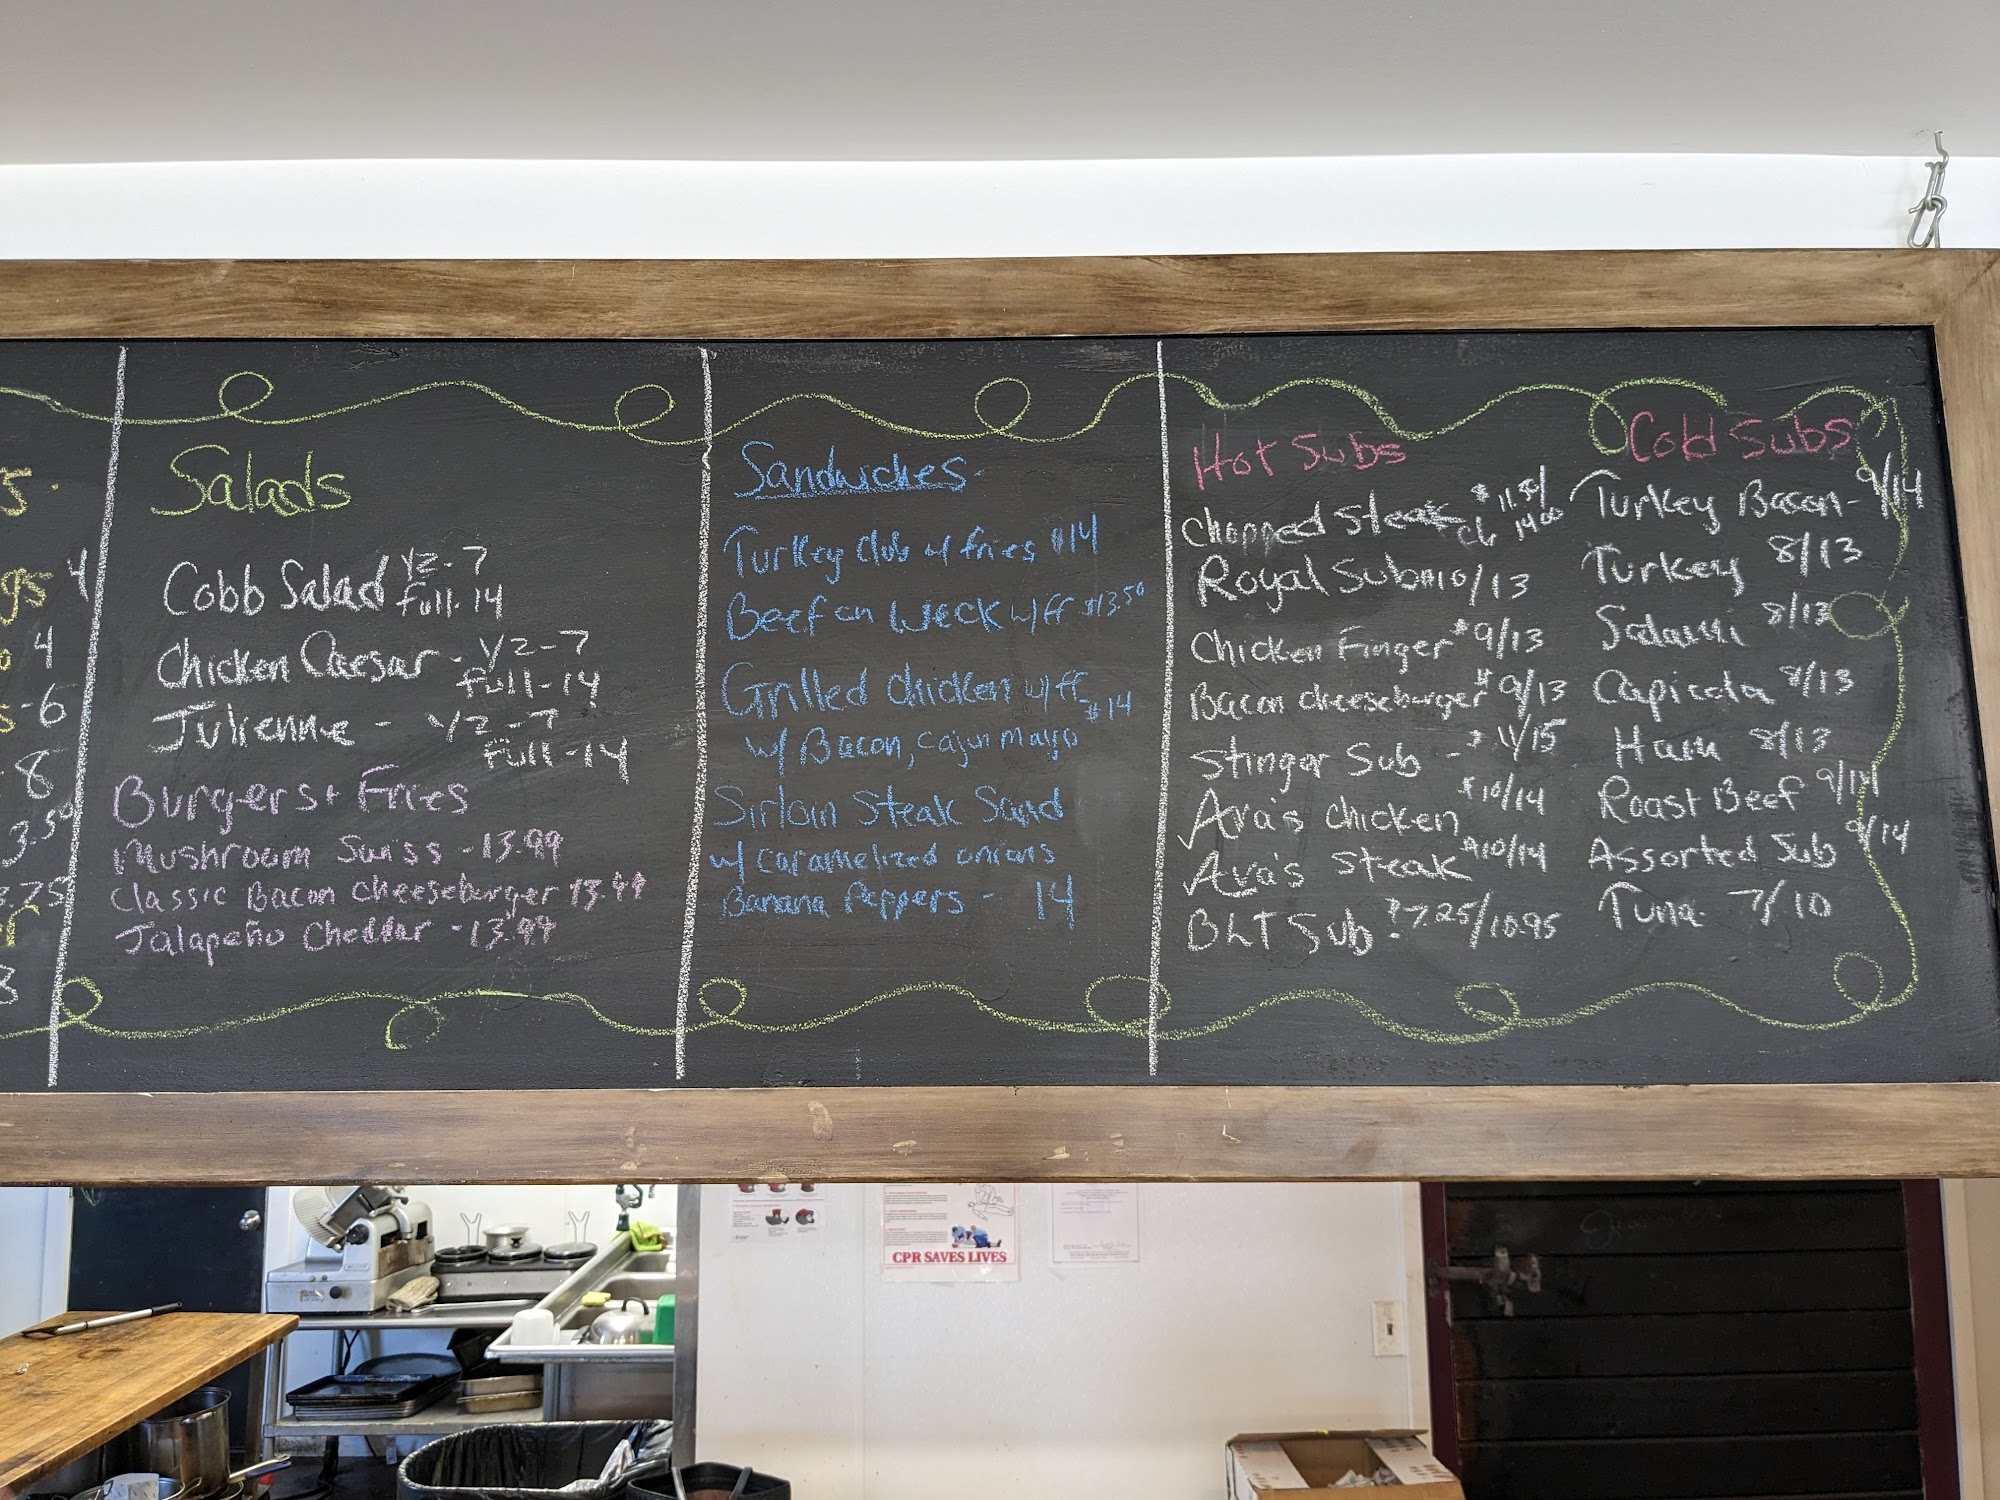 s.
gs 4
4
s -6
8
3.50
3.75
8
Salads
Cobb Salad 1/2 - 7
Full - 14
Chicken Caesar - 1/2 - 7
Full - 14
Julienne - 1/2 - 7
Full - 14
Burgers + Fries
Mushroom Swiss - 13.99
Classic Bacon Cheeseburger 13.99
Jalapeño Cheddar - 13.99
Sandwiches
Turkey Club w/ fries $14
Beef on Weck w/ff $13.50
Grilled Chicken w/ff $14
w/ Bacon, Cajun Mayo
Sirloin Steak Sand
w/ caramelized onions
Banana Peppers - 14
Hot Subs
Chopped Steak $11.50/
14.00
Royal Sub $10/13
Chicken Finger $9/13
Bacon Cheeseburger $9/13
Stinger Sub - $11/15
Ava's Chicken $10/14
Ava's Steak $10/14
BLT Sub $7.25/10.95
Cold Subs
Turkey Bacon - 9/14
Turkey 8/13
Salami 8/13
Capicola 8/13
Ham 8/13
Roast Beef 9/14
Assorted Sub 9/14
Tuna 7/10
CPR SAVES LIVES